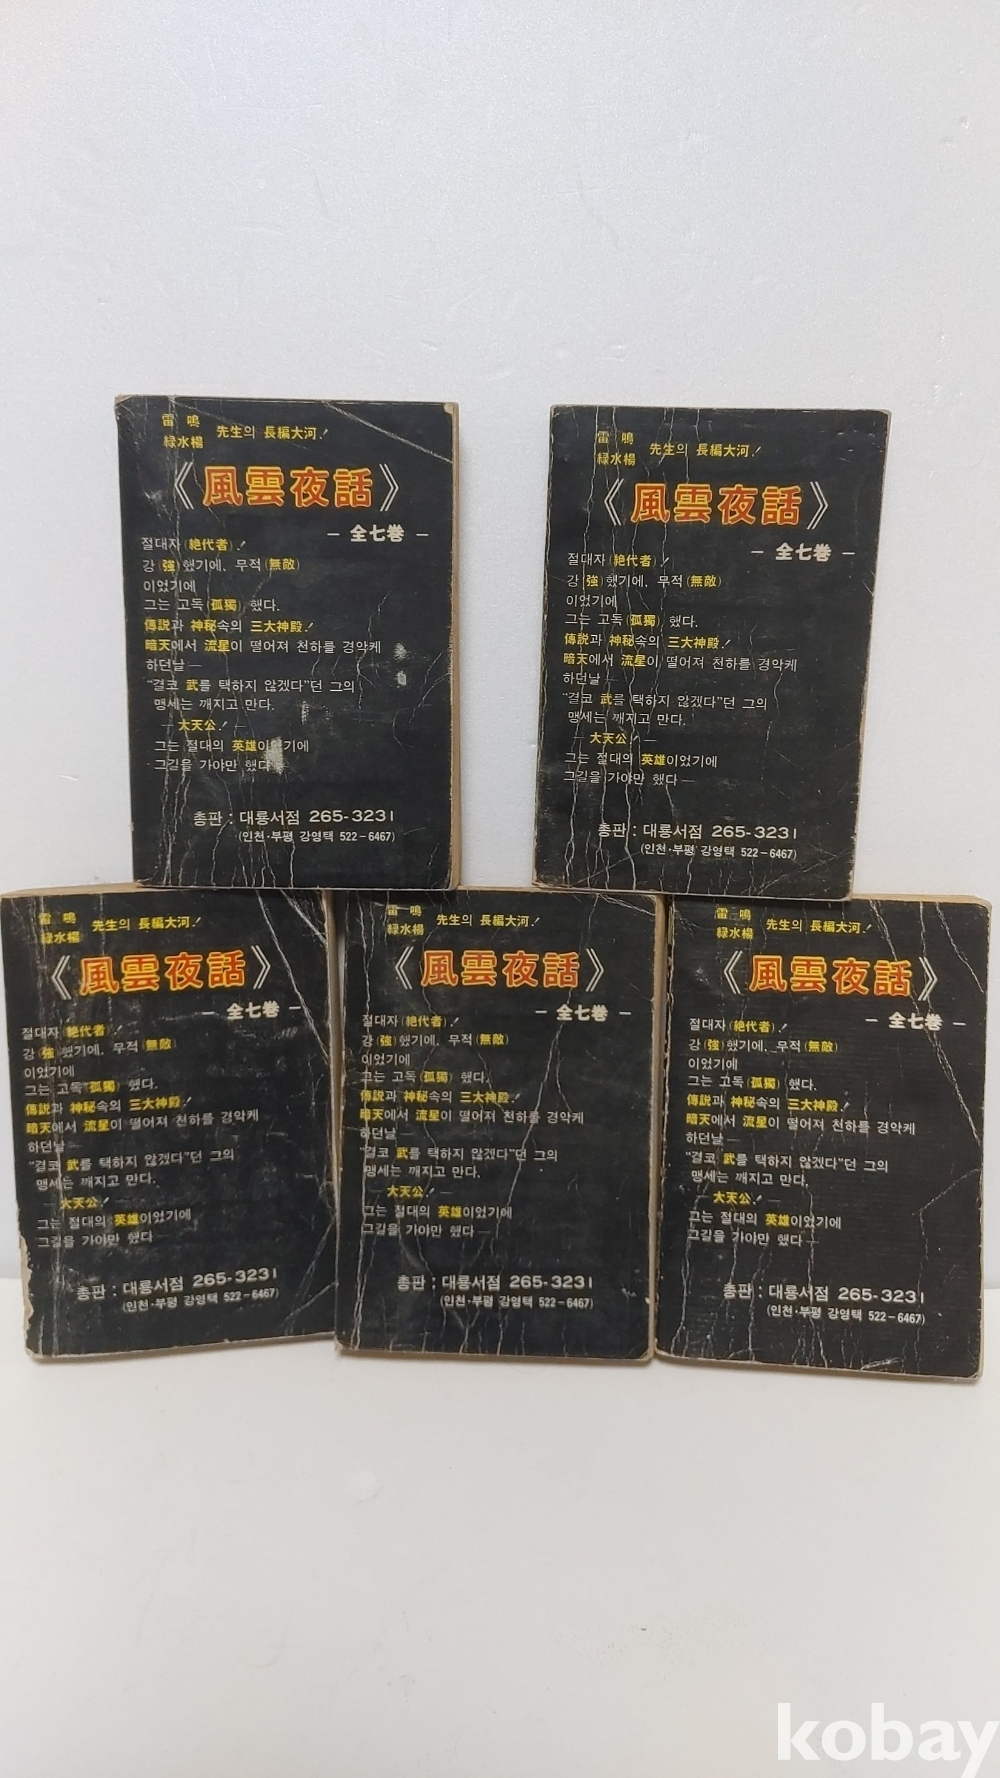 雷鳴
緑水楊 先生의 長編大河!
《風雲夜話》
- 全七巻 -
절대자(絶代者)!
강(強)했기에, 무적(無敵)
이었기에
그는 고독(孤獨) 했다.
傳説과 神秘속의 三大神殿!
暗天에서 流星이 떨어져 천하를 경악케
하던날—
"결코 武를 택하지 않겠다"던 그의
맹세는 깨지고 만다.
— 大天公! —
그는 절대의 英雄이었기에
그길을 가야만 했다—
총판 : 대룡서점 265-3231
(인천·부평 강영택 522-6467)
雷鳴
緑水楊 先生의 長編大河!
《風雲夜話》
- 全七巻 -
절대자(絶代者)!
강(強)했기에, 무적(無敵)
이었기에
그는 고독(孤獨) 했다.
傳説과 神秘속의 三大神殿!
暗天에서 流星이 떨어져 천하를 경악케
하던날—
"결코 武를 택하지 않겠다"던 그의
맹세는 깨지고 만다.
— 大天公! —
그는 절대의 英雄이었기에
그길을 가야만 했다—
총판 : 대룡서점 265-3231
(인천·부평 강영택 522-6467)
雷鳴
緑水楊 先生의 長編大河!
《風雲夜話》
- 全七巻 -
절대자(絶代者)!
강(強)했기에, 무적(無敵)
이었기에
그는 고독(孤獨) 했다.
傳説과 神秘속의 三大神殿!
暗天에서 流星이 떨어져 천하를 경악케
하던날—
"결코 武를 택하지 않겠다"던 그의
맹세는 깨지고 만다.
— 大天公! —
그는 절대의 英雄이었기에
그길을 가야만 했다—
총판 : 대룡서점 265-3231
(인천·부평 강영택 522-6467)
雷鳴
緑水楊 先生의 長編大河!
《風雲夜話》
- 全七巻 -
절대자(絶代者)!
강(強)했기에, 무적(無敵)
이었기에
그는 고독(孤獨) 했다.
傳説과 神秘속의 三大神殿!
暗天에서 流星이 떨어져 천하를 경악케
하던날—
"결코 武를 택하지 않겠다"던 그의
맹세는 깨지고 만다.
— 大天公! —
그는 절대의 英雄이었기에
그길을 가야만 했다—
총판 : 대룡서점 265-3231
(인천·부평 강영택 522-6467)
雷鳴
緑水楊 先生의 長編大河!
《風雲夜話》
- 全七巻 -
절대자(絶代者)!
강(強)했기에, 무적(無敵)
이었기에
그는 고독(孤獨) 했다.
傳説과 神秘속의 三大神殿!
暗天에서 流星이 떨어져 천하를 경악케
하던날—
"결코 武를 택하지 않겠다"던 그의
맹세는 깨지고 만다.
— 大天公! —
그는 절대의 英雄이었기에
그길을 가야만 했다—
총판 : 대룡서점 265-3231
(인천·부평 강영택 522-6467)
kobay